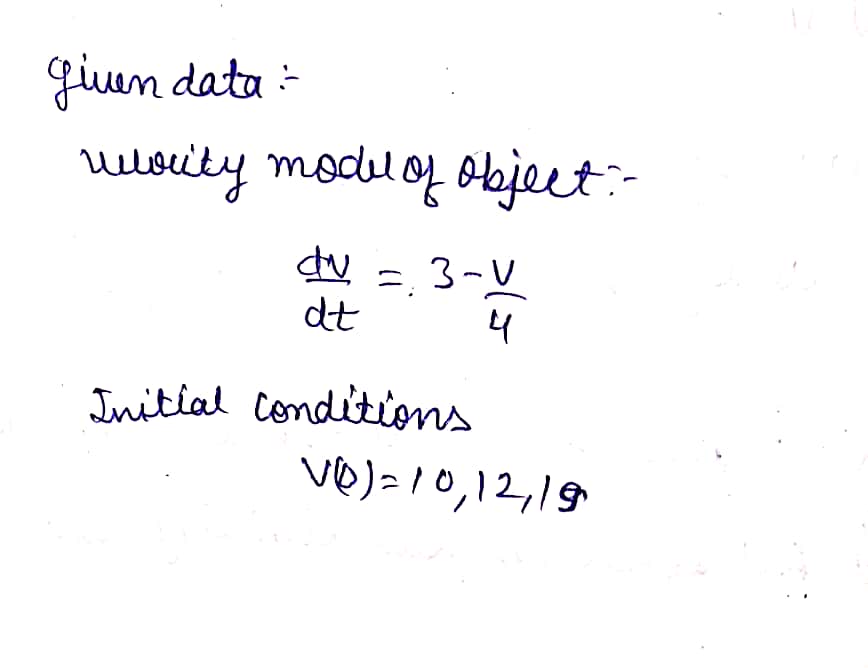 given data :-
velocity model of object :-
dv/dt = 3 - v/4
Initial conditions
V(0) = 10, 12, 19